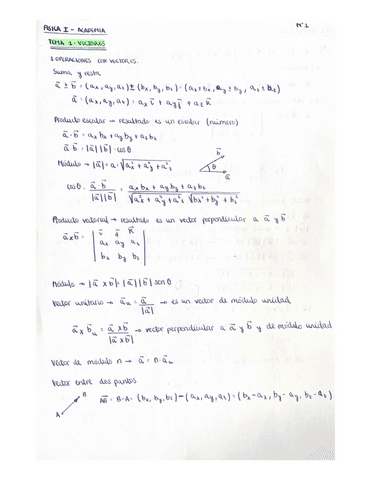 FÍSICA I - ACADEMIA
Nº1
TEMA 1 - VECTORES
1. OPERACIONES CON VECTORES.
Suma y resta
a⃗ ± b⃗ = (ax, ay, az) ± (bx, by, bz) = (ax ± bx, ay ± by, az ± bz)
a⃗ = (ax, ay, az) = ax i⃗ + ay j⃗ + az k⃗
Producto escalar → resultado es un escalar (número)
a⃗ · b⃗ = ax bx + ay by + az bz
a⃗ b⃗ = |a⃗| |b⃗| · cosθ
Módulo → |a⃗| = a = √(ax² + ay² + az²)
b⃗
θ
a⃗
cosθ = a⃗ · b⃗ / |a⃗| |b⃗| = ax bx + ay by + az bz / √(ax² + ay² + az²) √(bx² + by² + bz²)
Producto vectorial → resultado es un vector perpendicular a a⃗ y b⃗
a⃗ x b⃗ = | i⃗ j⃗ k⃗ |
| ax ay az |
| bx by bz |
Módulo → |a⃗ x b⃗| = |a⃗| |b⃗| senθ
Vector unitario → a⃗u = a⃗ / |a⃗| → es un vector de módulo unidad
a⃗ x b⃗u = a⃗ x b⃗ / |a⃗ x b⃗| → vector perpendicular a a⃗ y b⃗ y de módulo unidad
Vector de módulo n → a⃗ = n · a⃗u
Vector entre dos puntos
B
A
AB⃗ = B - A = (bx, by, bz) - (ax, ay, az) = (bx - ax, by - ay, bz - az)